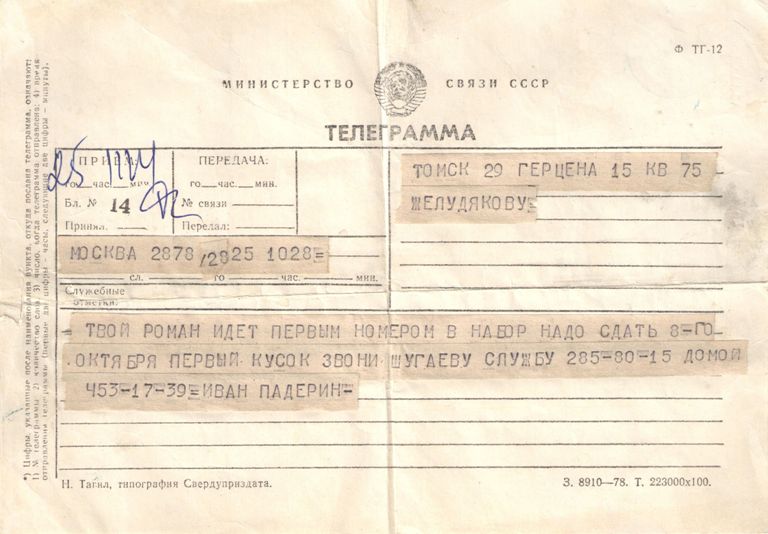 Ф ТГ-12
МИНИСТЕРСТВО СВЯЗИ СССР
ТЕЛЕГРАММА
ПРИЕМ:
го час. мин.
Бл. № 14
Принял.
ПЕРЕДАЧА:
го час. мин.
№ связи
Передал:
ТОМСК 29 ГЕРЦЕНА 15 КВ 75
ЖЕЛУДЯКОВУ=
МОСКВА 2878 /28 25 1028=
сл. го час. мин.
Служебные
отметки:
ТВОЙ РОМАН ИДЕТ ПЕРВЫМ НОМЕРОМ В НАБОР НАДО СДАТЬ 8-ГО
ОКТЯБРЯ ПЕРВЫЙ КУСОК ЗВОНИ ШУГАЕВУ СЛУЖБУ 285-80-15 ДОМОЙ
453-17-39=ИВАН ПАДЕРИН-
Н. Тагил, типография Свердуприздата.
З. 8910—78. Т. 223000х100.
*) Цифры, указанные после наименования пункта, откуда послана телеграмма, означают:
1) № телеграммы 2) количество слов 3) число, когда телеграмма отправлена; 4) время
отправления телеграммы (первые две цифры — часы, следующие две цифры — минуты).